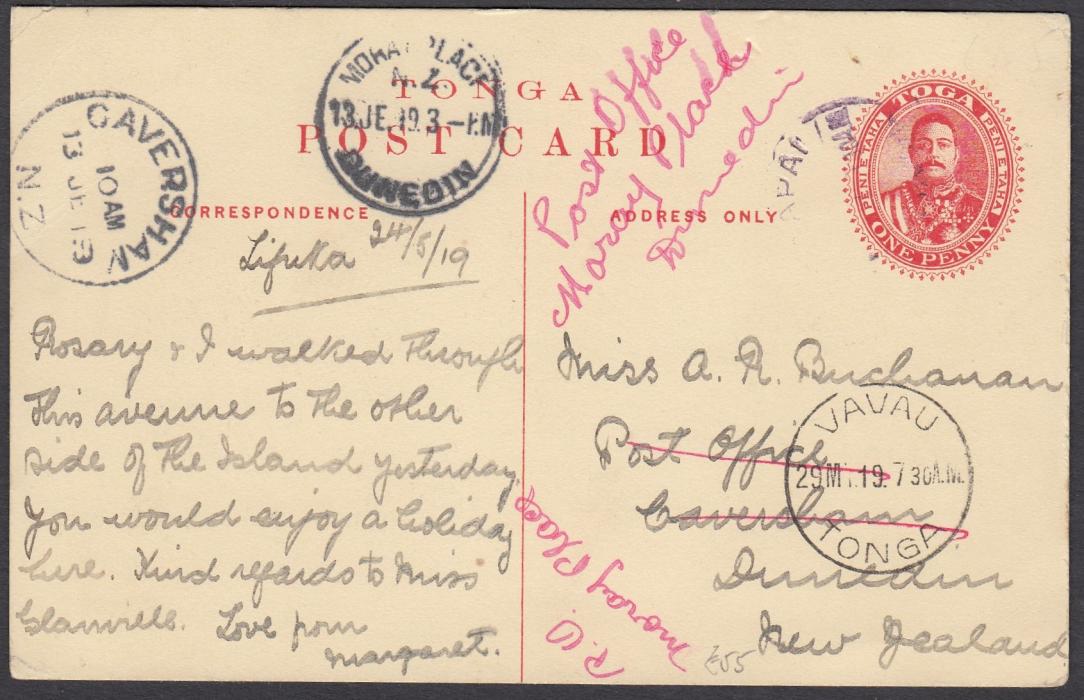 TONGA
POST CARD
CORRESPONDENCE
ADDRESS ONLY
TOGA
PENI E TAHA
PENI E TAHA
ONE PENNY
CAVERSHAM
10 AM
13 JE 19
N.Z
MORAY PLACE
N.Z.
13.JE.19.3-PM
DUNEDIN
APAI
Post Office
Moray Place
Dunedin
Lifuka 24/5/19
Rosary & I walked through
this avenue to the other
side of the Island yesterday.
You would enjoy a holiday
here. Kind regards to Miss
Glanville. Love from
Margaret.
Miss A. R. Buchanan
Post Office
Caversham
Dunedin
New Zealand
VAVAU
29 MY.19.7 30A.M.
TONGA
Moray Place
£55